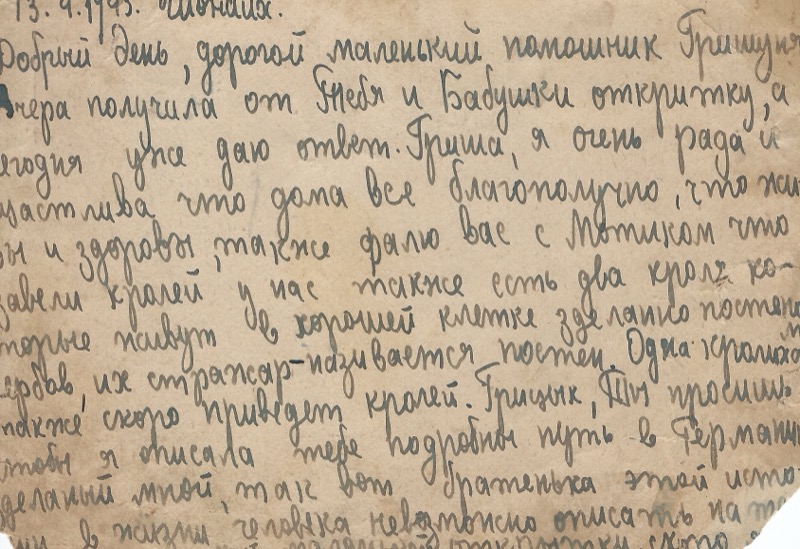 13.9.1943.
Добрый день, дорогой маленский помошник Гришуня
вчера получила от Тебя и Бабушки откритку, а
егодня уже даю ответ. Гриша, я очень рада и
щастлива что дома все благополучно, что жи
вы и здоровы, также фалю вас с Мотиком что
завели кролей у нас также есть два кроля ко-
торые живут в хорошей клетке зделанно постен
их стражар-називается постен. Одна кролиха
также скоро приведет кролей. Грицык, Ты просишь
чтобы я описала тебе подробны путь в Германи
зделаный мной, так вот братенька этой исто
рии в жизни человека невозможно описать на
открытки скоро